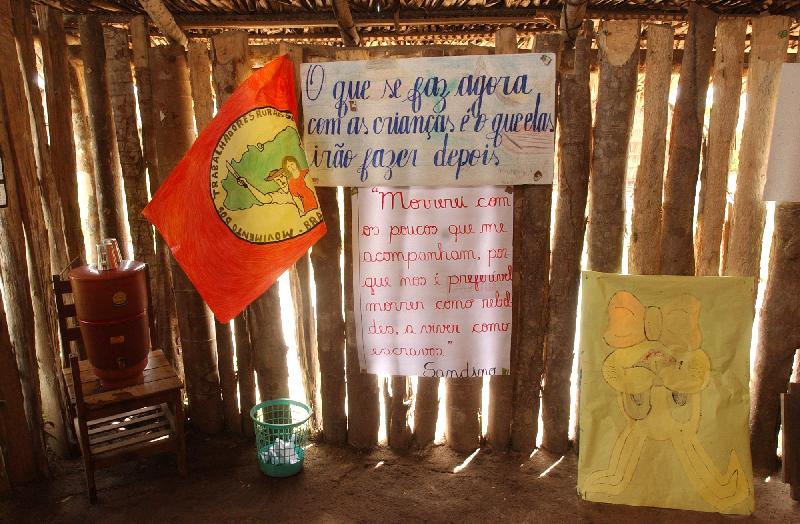 MOVIMENTO DOS TRABALHADORES RURAIS
O que se faz agora
com as crianças é o que elas
irão fazer depois
"Morrerei com
os poucos que me
acompanham, por
que nos é preferível
morrer como rebel
des, a viver como
escravos."
Sandino